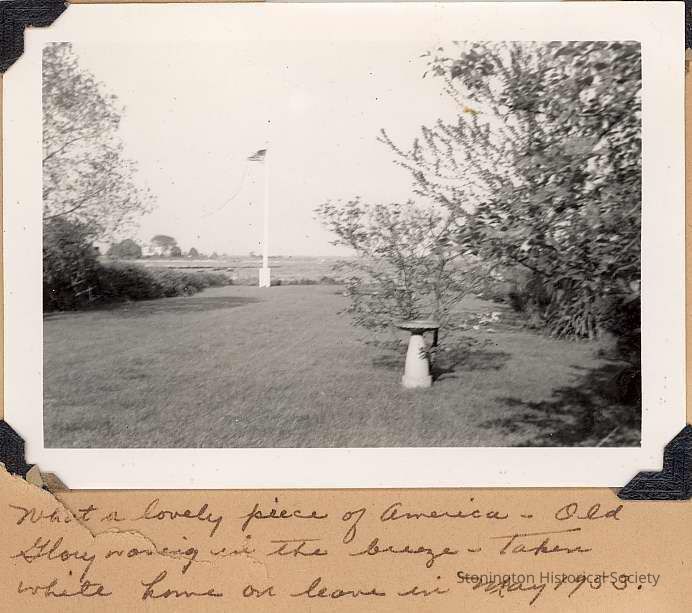 What a lovely piece of America - Old
Glory waving in the breeze - Taken
white home on leave in May 1953.
Stonington Historical Society